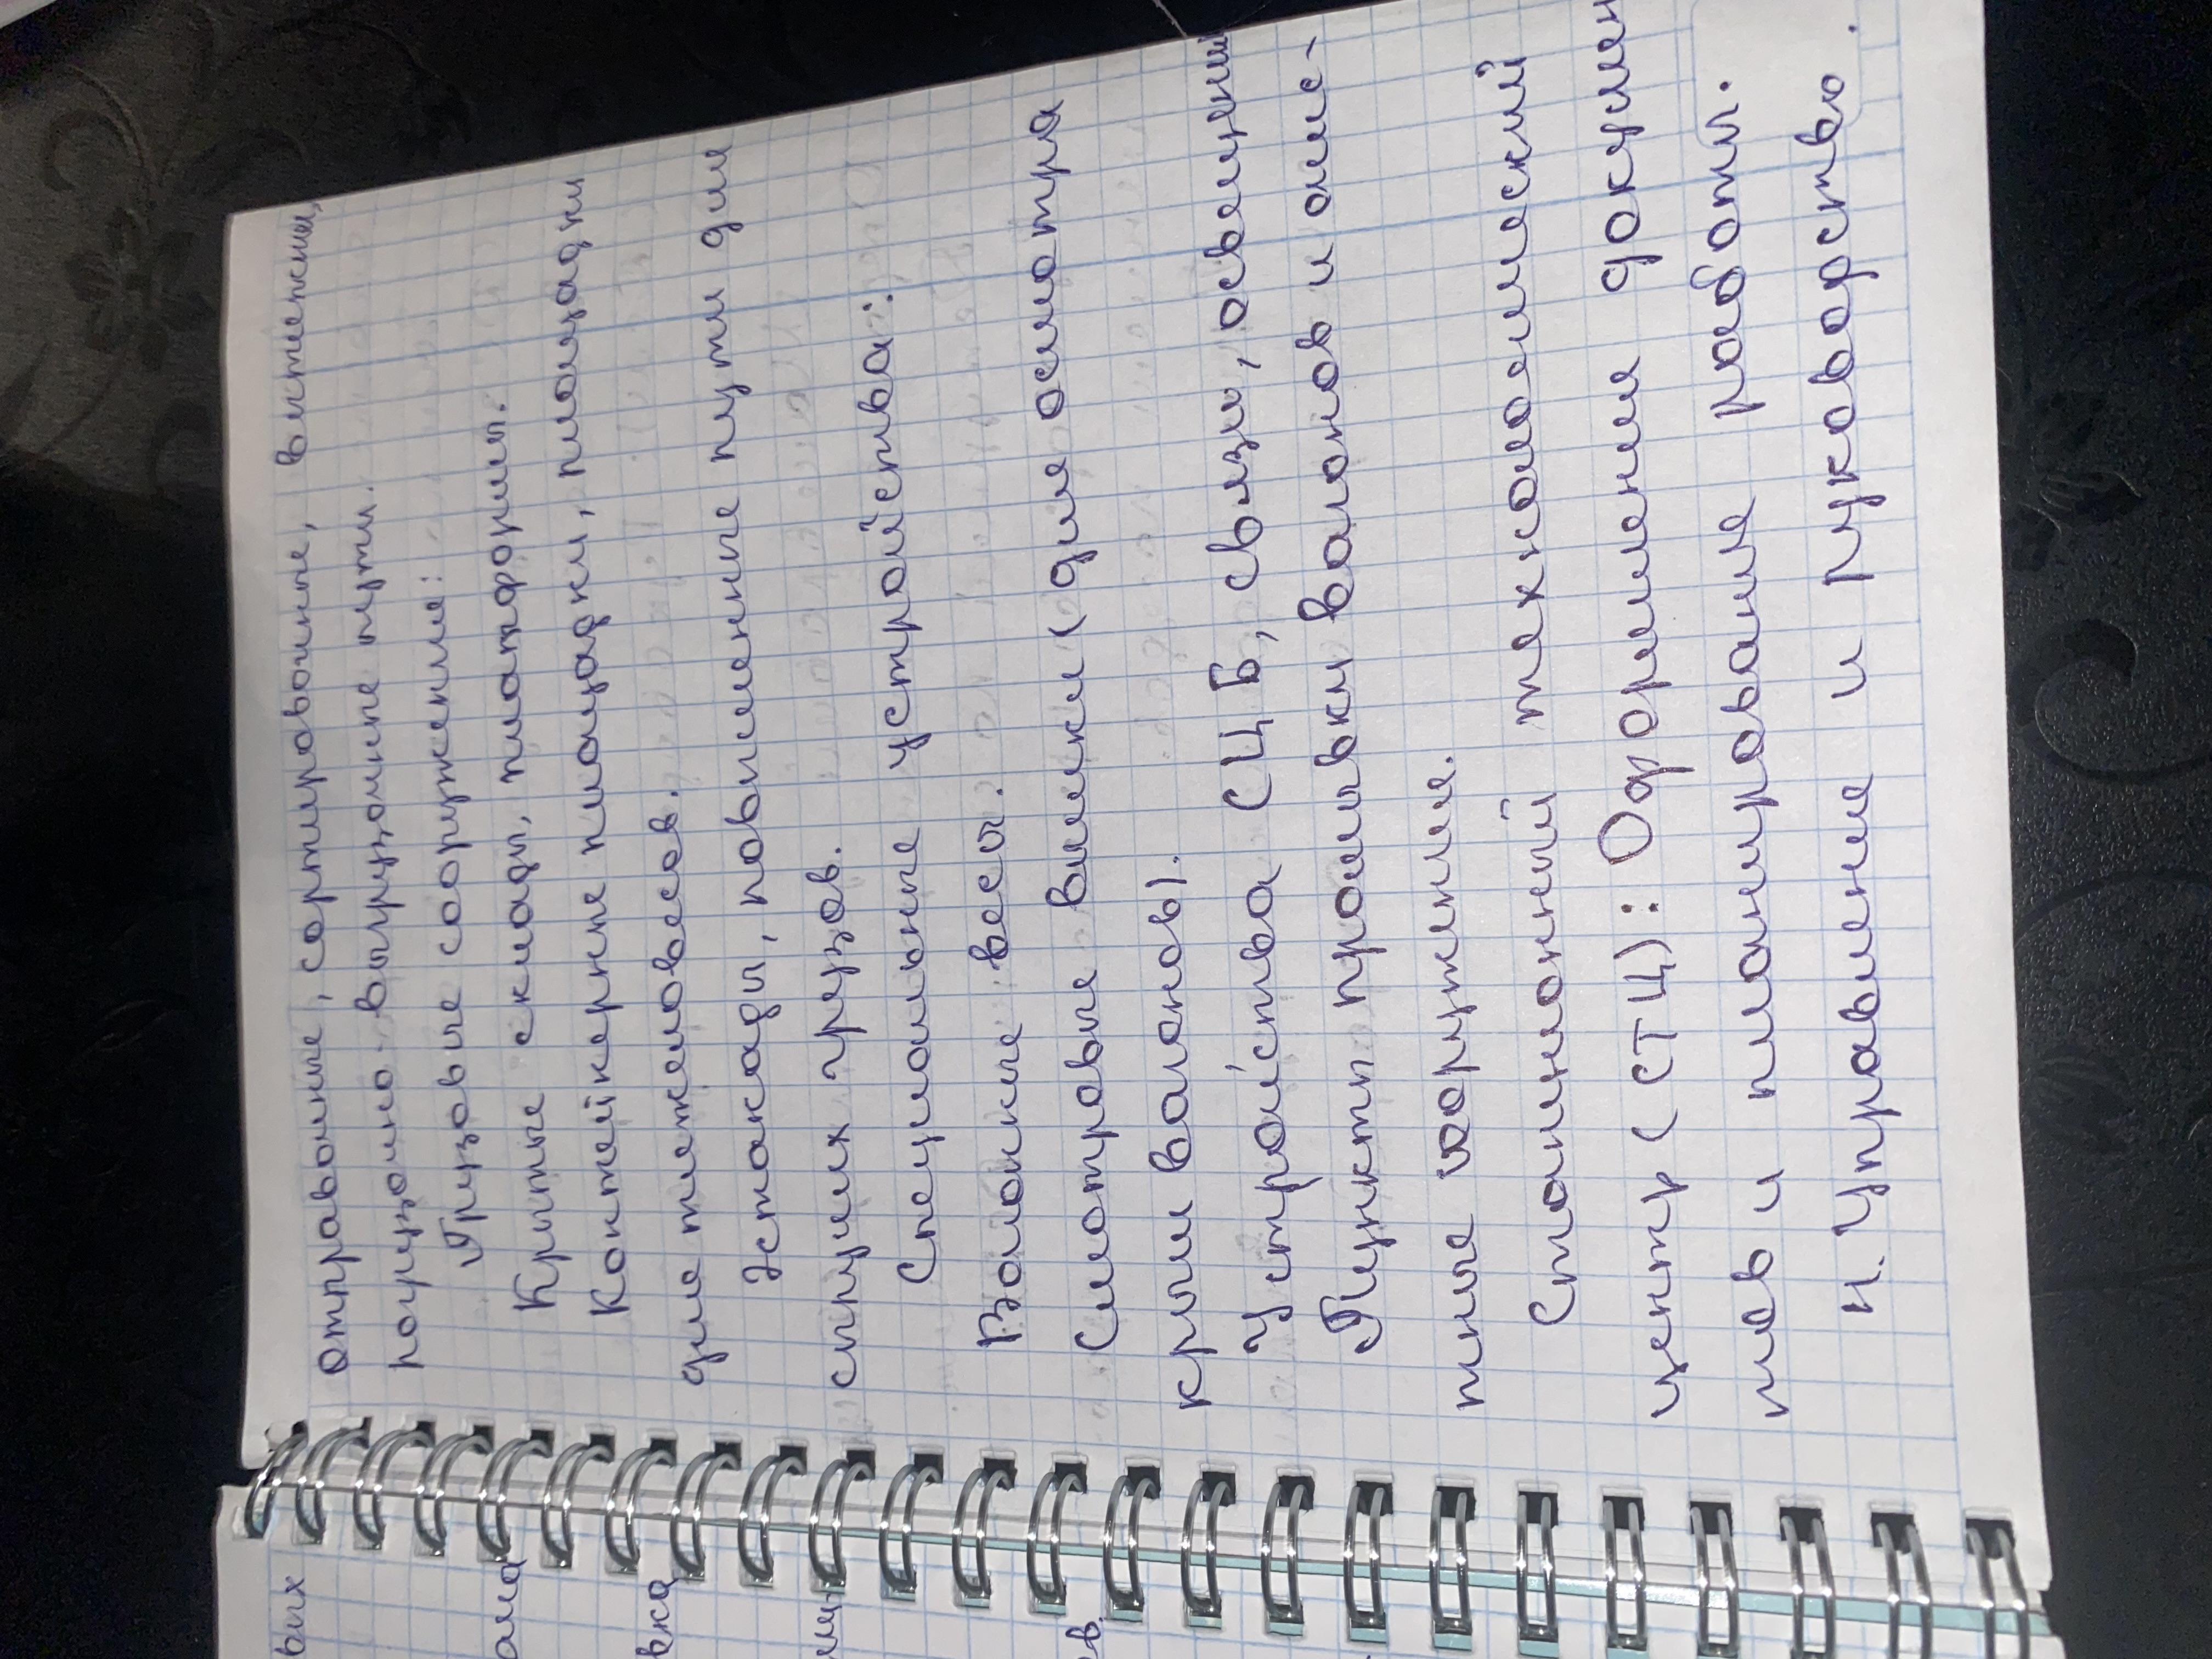 отправочные, сортировочные, вытяжны,
погрузочно-выгрузочные пути.
Грузовые сооружения:
Крытые склады, платформы.
Контейнерные площадки, площадки
для тяжеловесов.
Эстакады, повышенные пути для
сыпучих грузов.
Специальные устройства:
Вагонные весы.
Смотровые вышки (для осмотра
крыш вагонов).
Устройства СЦБ, связи, освещения
Пункты промывки вагонов и очис-
тные сооружения.
Станционный технологический
центр (СТЦ): Оформление докумен
тов и планирование работы.
4. Управление и руководство.
вых
ама
вка
ищ-
ев.